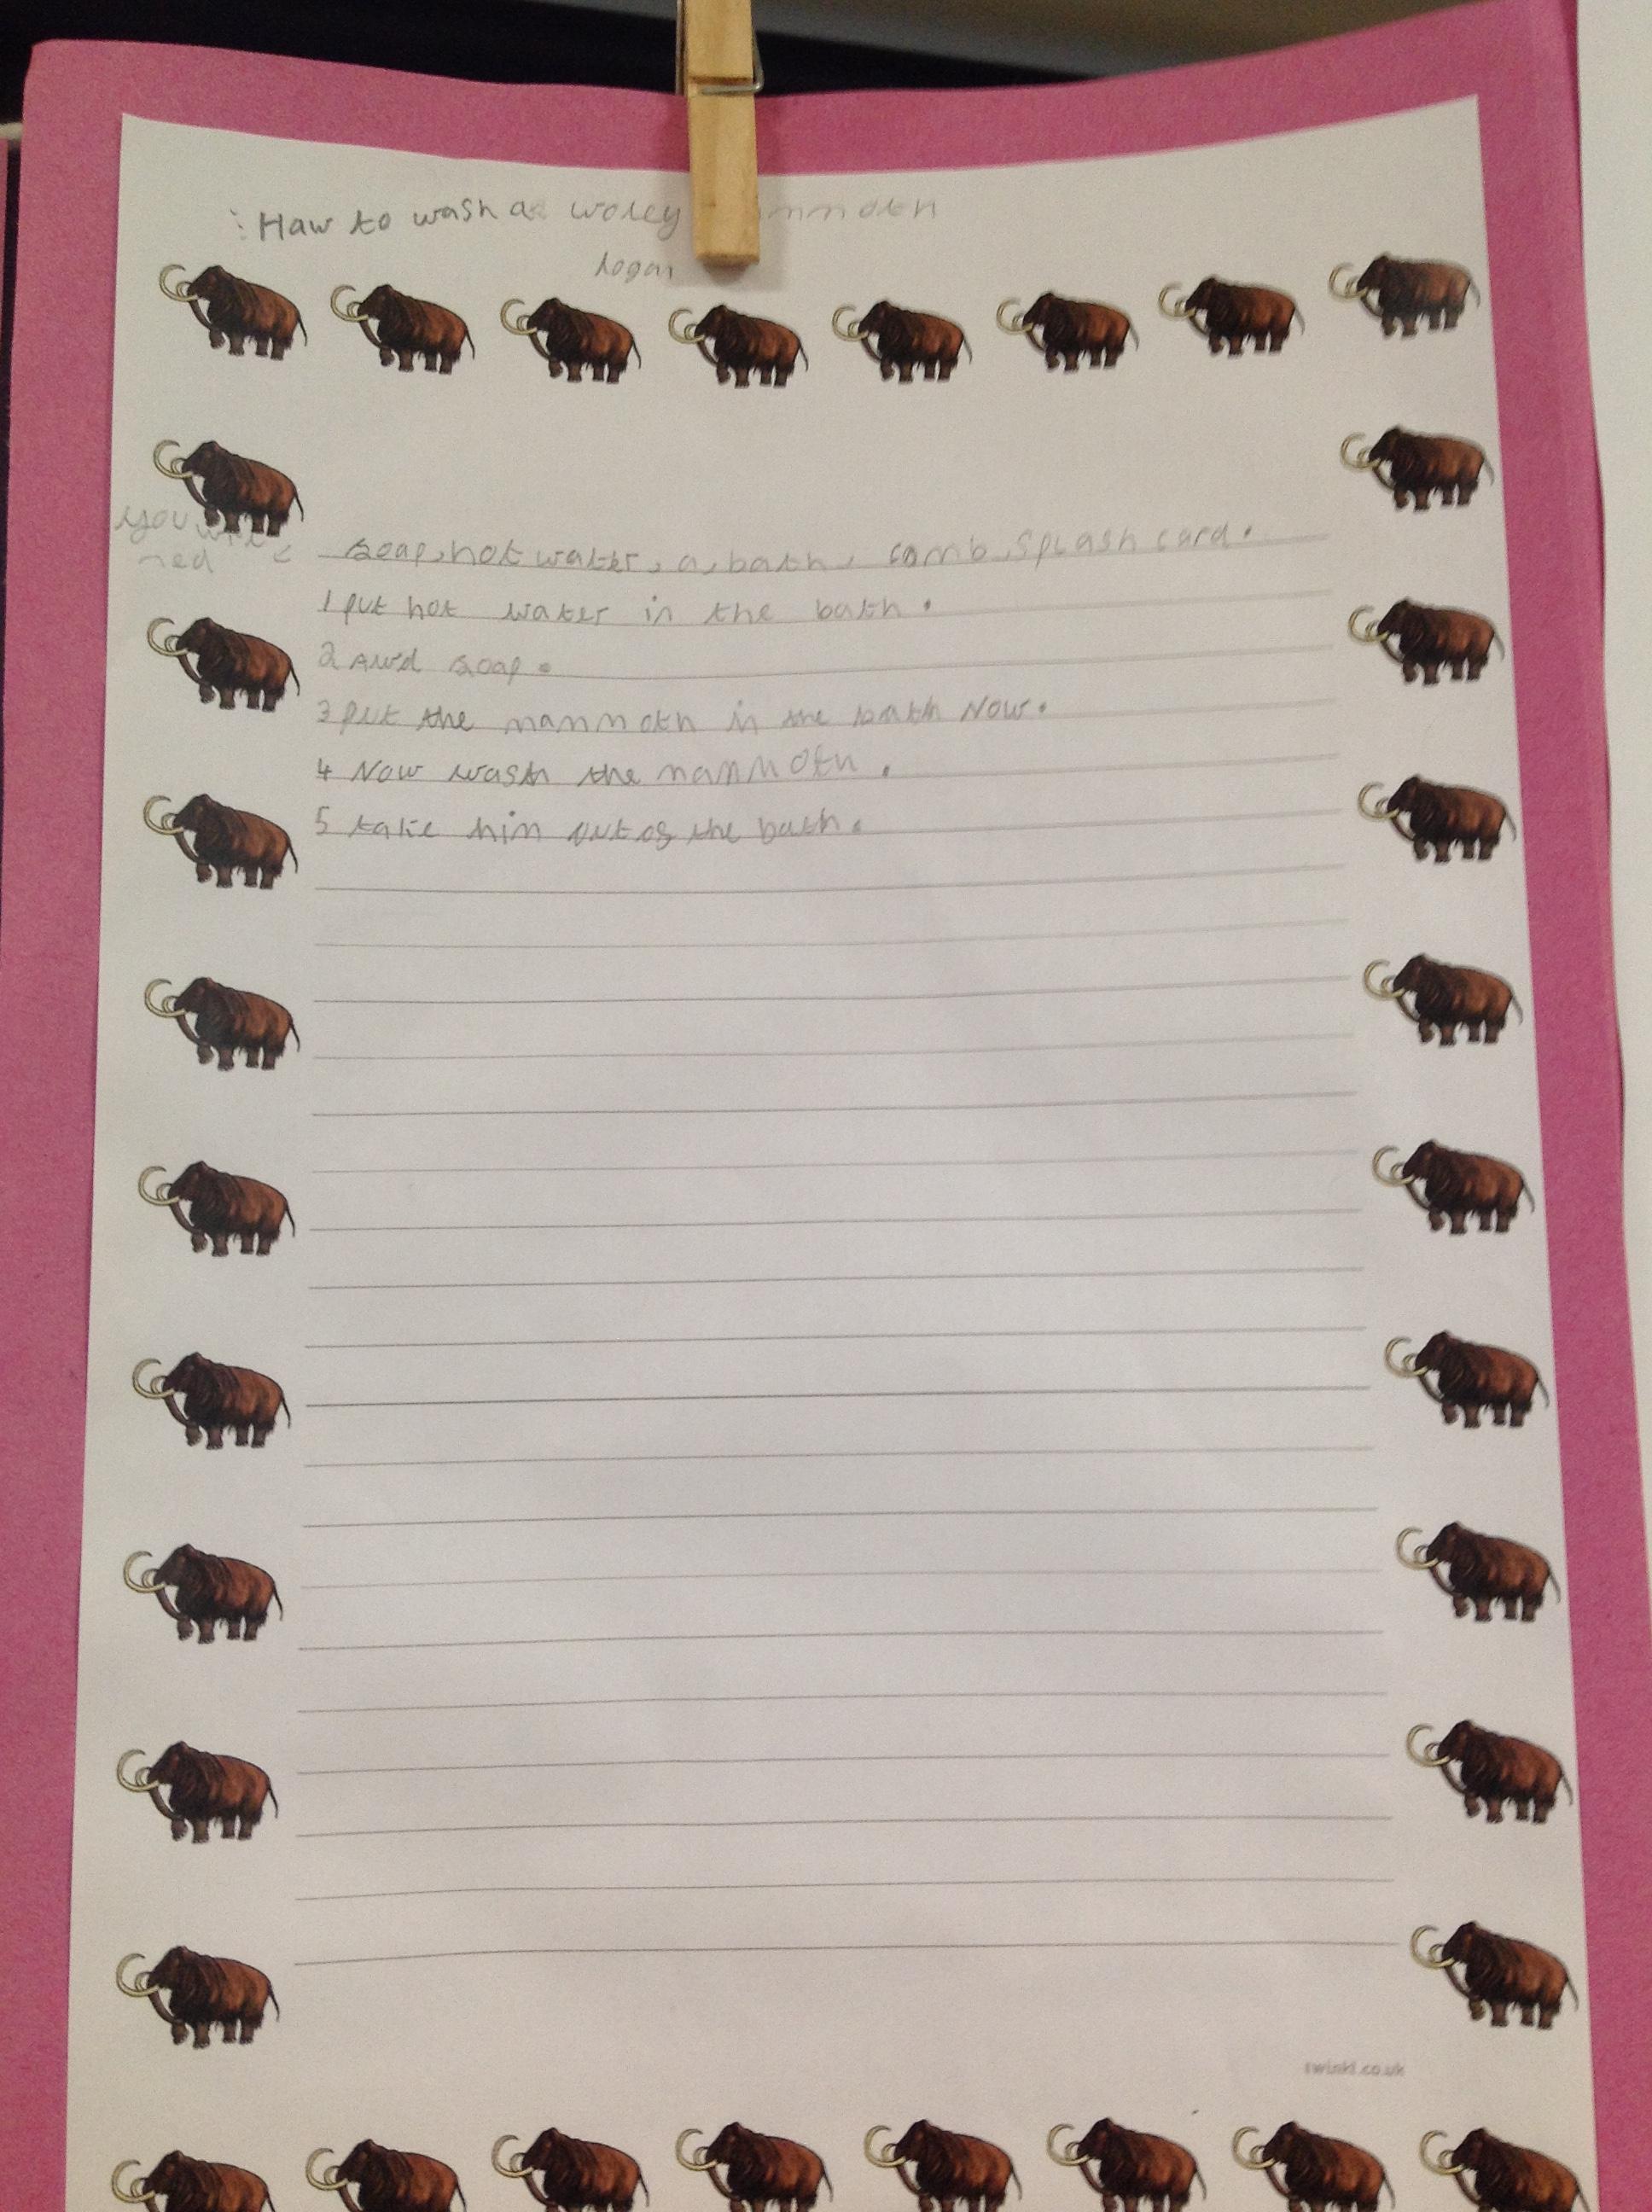 Haw to wash a woley mmoth
logan
you will
ned
soap, hot water, a, bath, comb, splash card.
1 put hot water in the bath.
2 Awd soap.
3 put the mammoth in the bath Now.
4 Now wash the mammoth.
5 take him out of the bath.
twinkl.co.uk